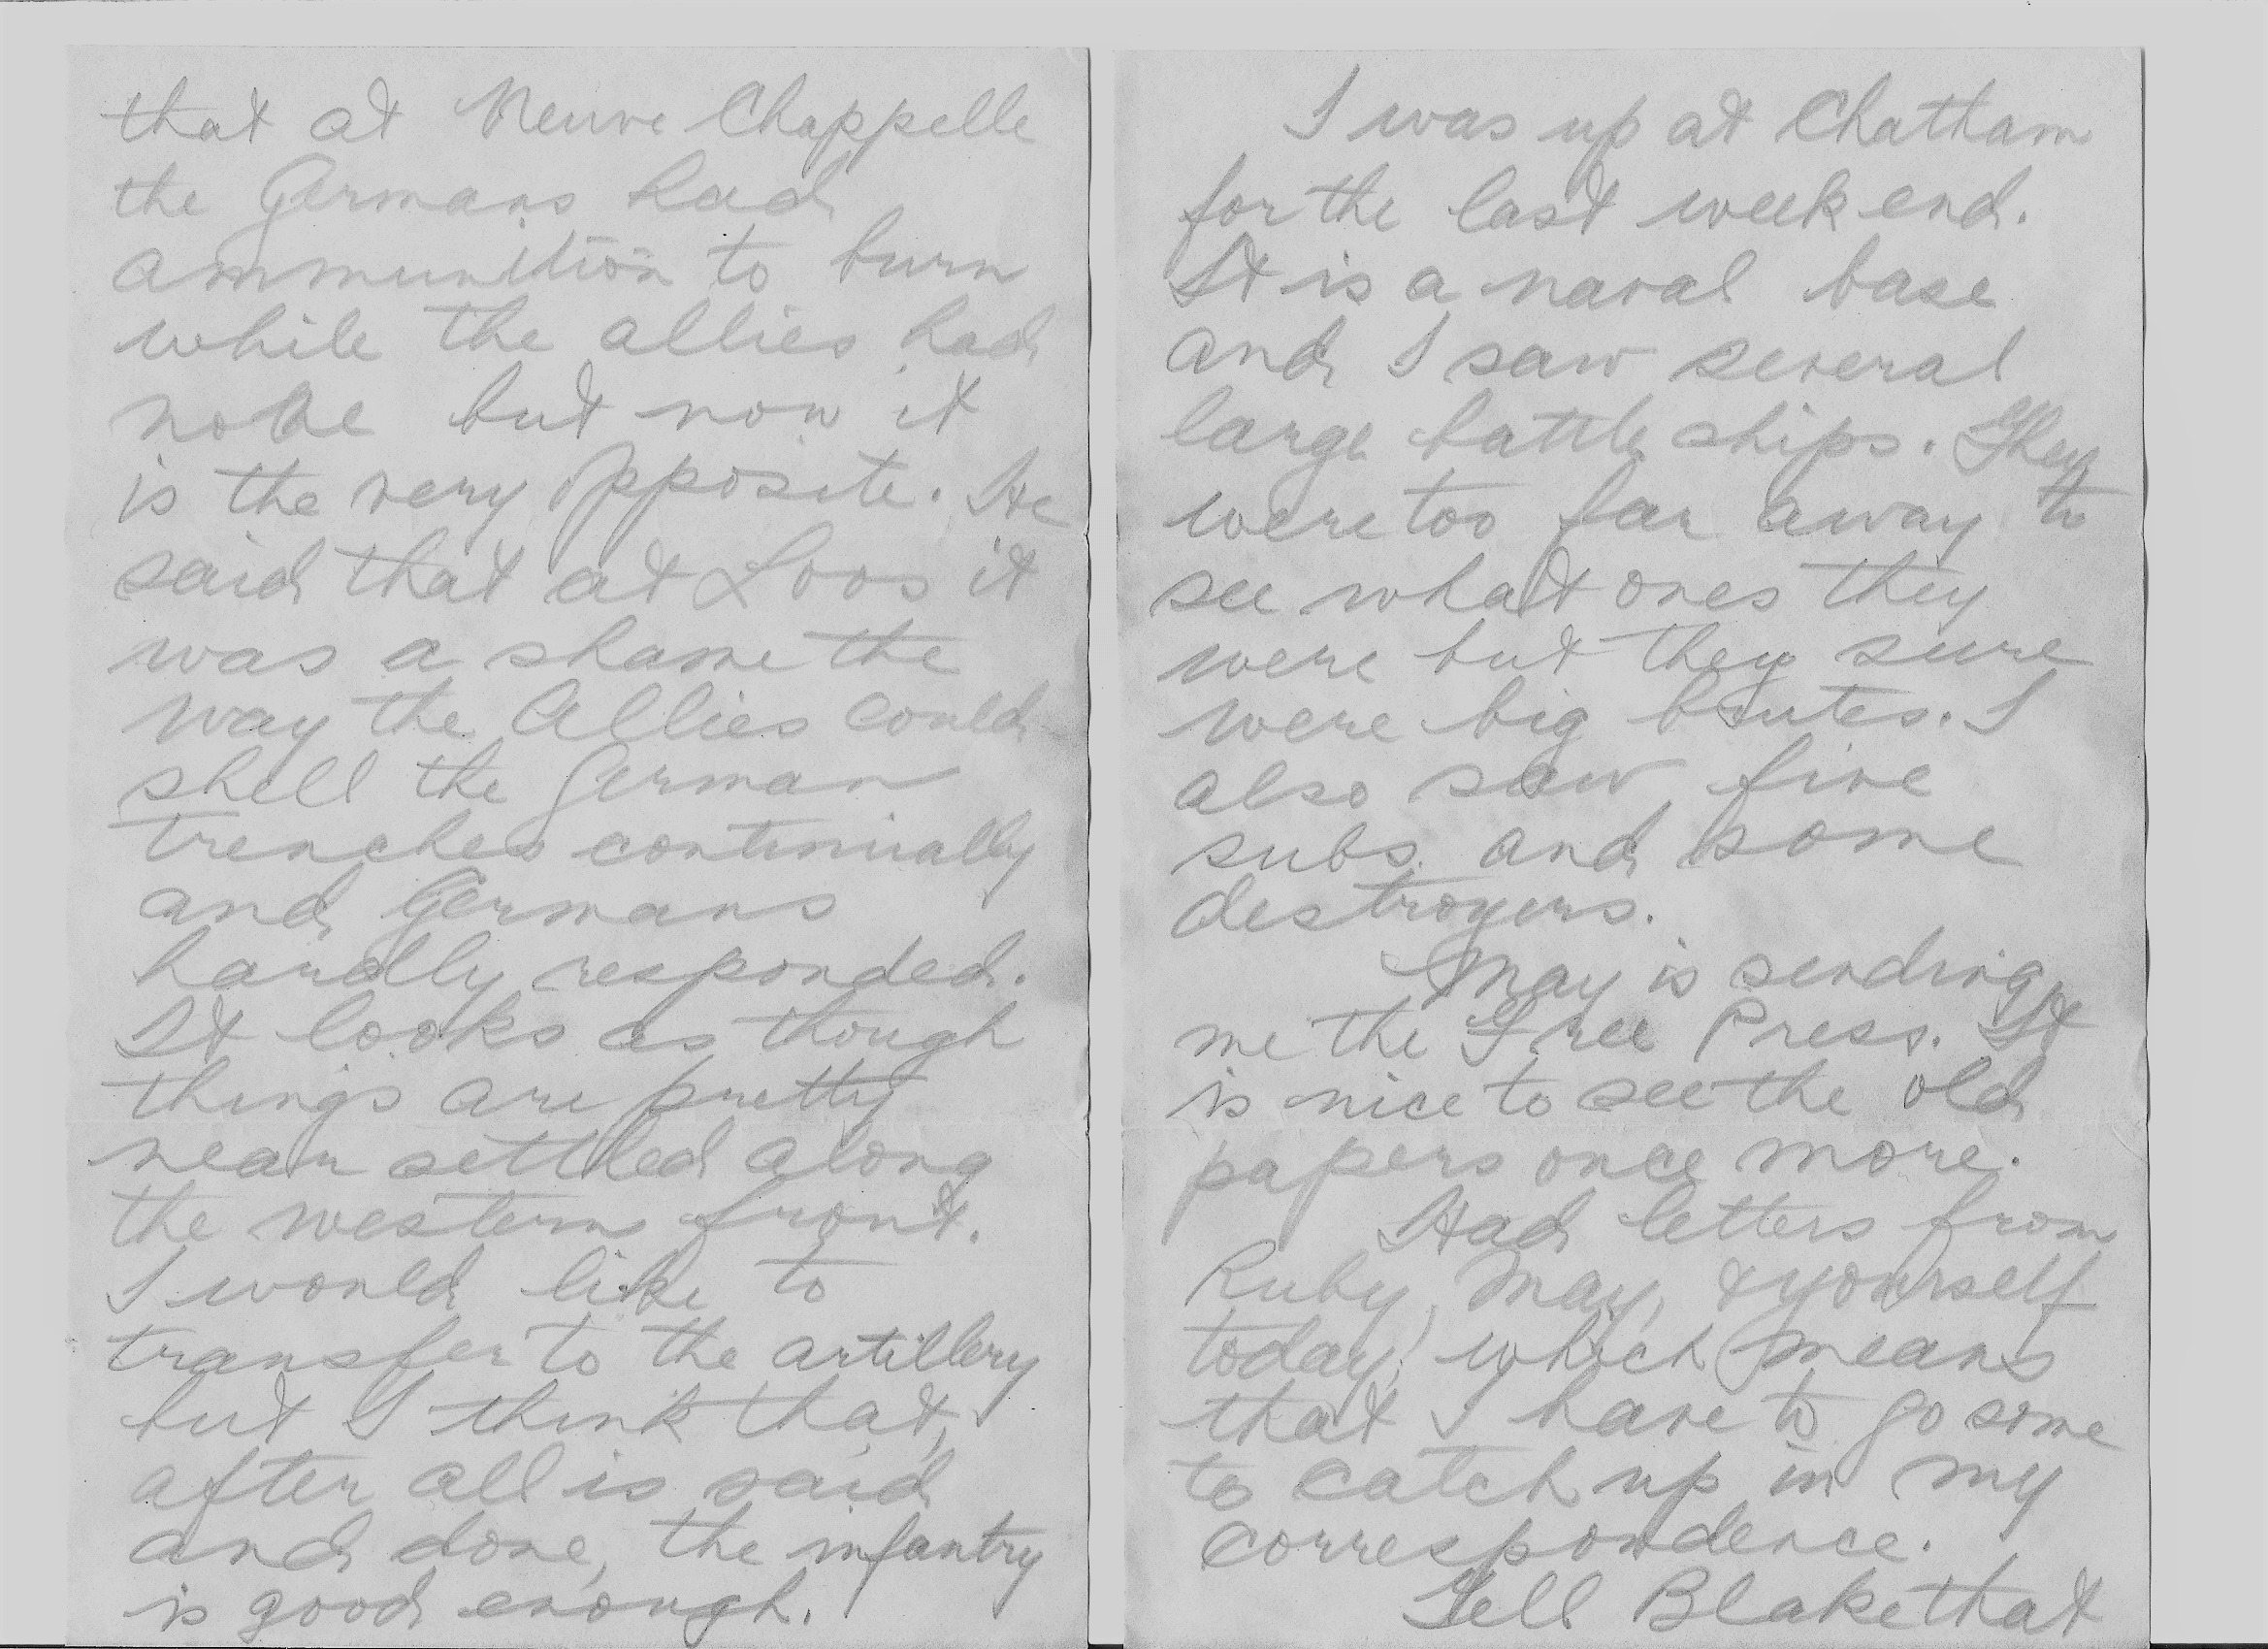 that at Neuve Chappelle
the Germans had
ammunition to burn
while the allies had
none but now it
is the very opposite. He
said that at Loos it
was a shame the
way the Allies could
shell the German
trenches continually
and Germans
hardly responded.
It looks as though
things are pretty
near settled along
the western front.
I would like to
transfer to the artillery
but I think that,
after all is said
and done, the infantry
is good enough.
I was up at Chatham
for the last week end.
It is a naval base
and I saw several
large battle ships. They
were too far away to
see what ones they
were but they sure
were big brutes. I
also saw five
subs and some
destroyers.
May is sending
me the Free Press. It
is nice to see the old
papers once more.
Had letters from
Ruby, May, & yourself
today, which means
that I have to go some
to catch up in my
correspondence.
Tell Blake that